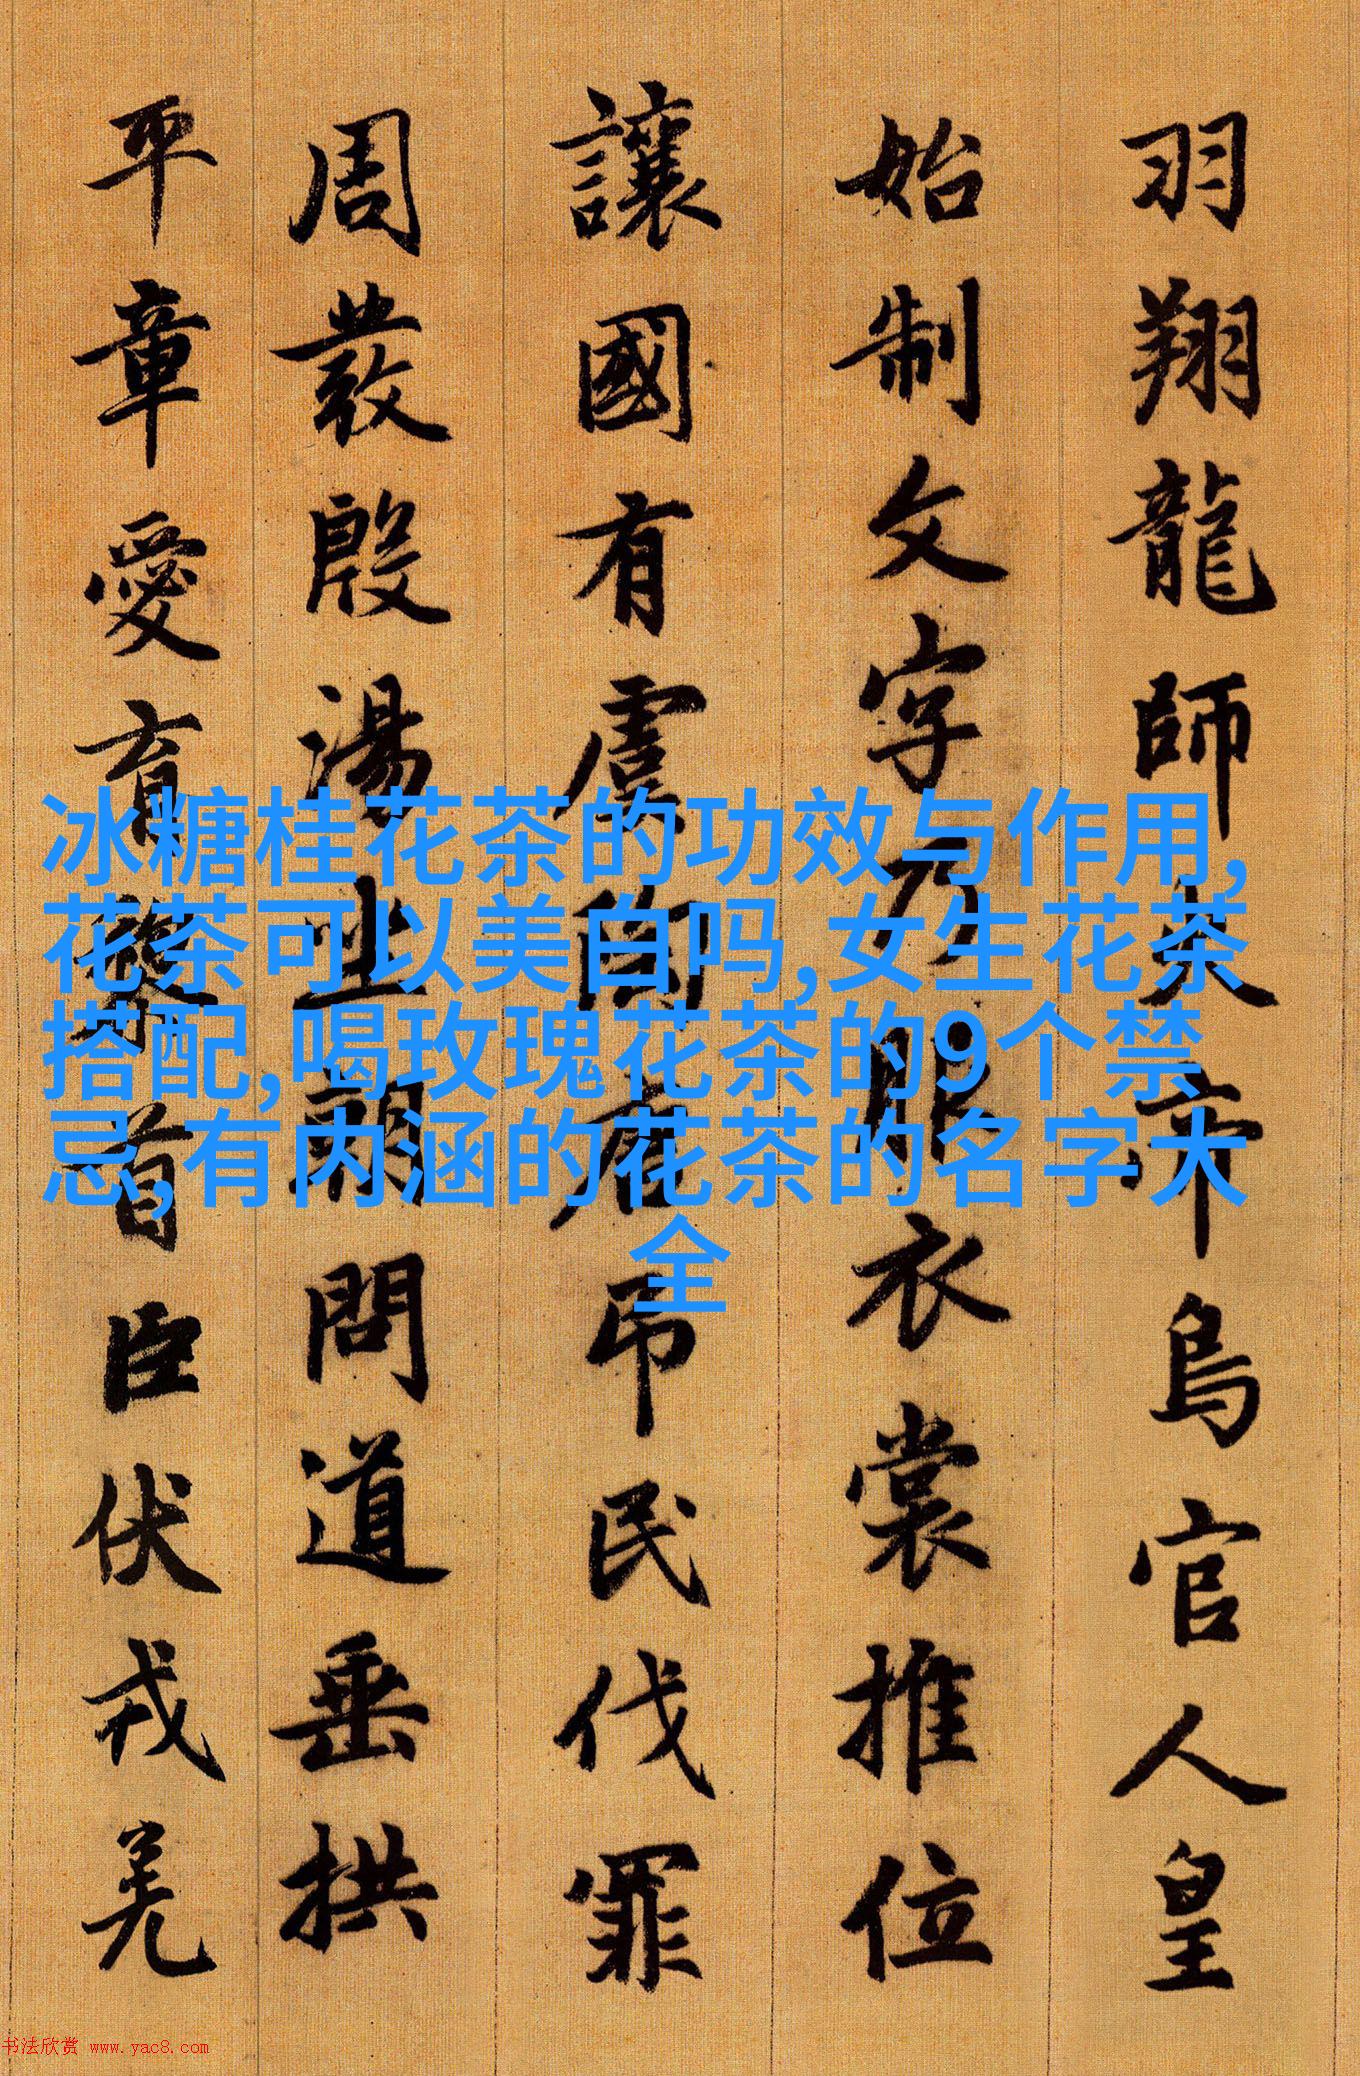 羽翔龍師火帝鳥官人皇
始制文字乃服衣裳推位
讓國有虞陶唐吊民伐罪
周發殷湯坐朝問道垂拱
平章愛育黎首臣伏戎羌
冰糖桂花茶的功效与作用,
花茶可以美白吗,女生花茶
搭配,喝玫瑰花茶的9个禁
忌,有内涵的花茶的名字大
全
书法欣赏 www.yac8.com